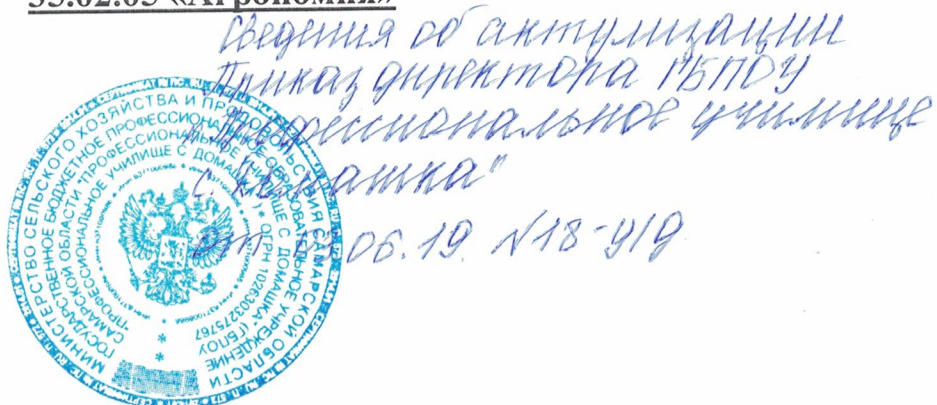 35.02.05 «Агрономия»
Сведения об актулизации
Приказ директора ГБПОУ
"Профессиональное училище
с. Домашка"
от .06.19. №18-у/д
МИНИСТЕРСТВО СЕЛЬСКОГО ХОЗЯЙСТВА И ПРОДОВОЛЬСТВИЯ САМАРСКОЙ ОБЛАСТИ
ГОСУДАРСТВЕННОЕ БЮДЖЕТНОЕ ПРОФЕССИОНАЛЬНОЕ ОБРАЗОВАТЕЛЬНОЕ УЧРЕЖДЕНИЕ
САМАРСКОЙ ОБЛАСТИ "ПРОФЕССИОНАЛЬНОЕ УЧИЛИЩЕ С ДОМАШКА" (ГБПОУ
"ПРОФЕССИОНАЛЬНОЕ УЧИЛИЩЕ С ДОМАШКА") * ОГРН 1026303275767